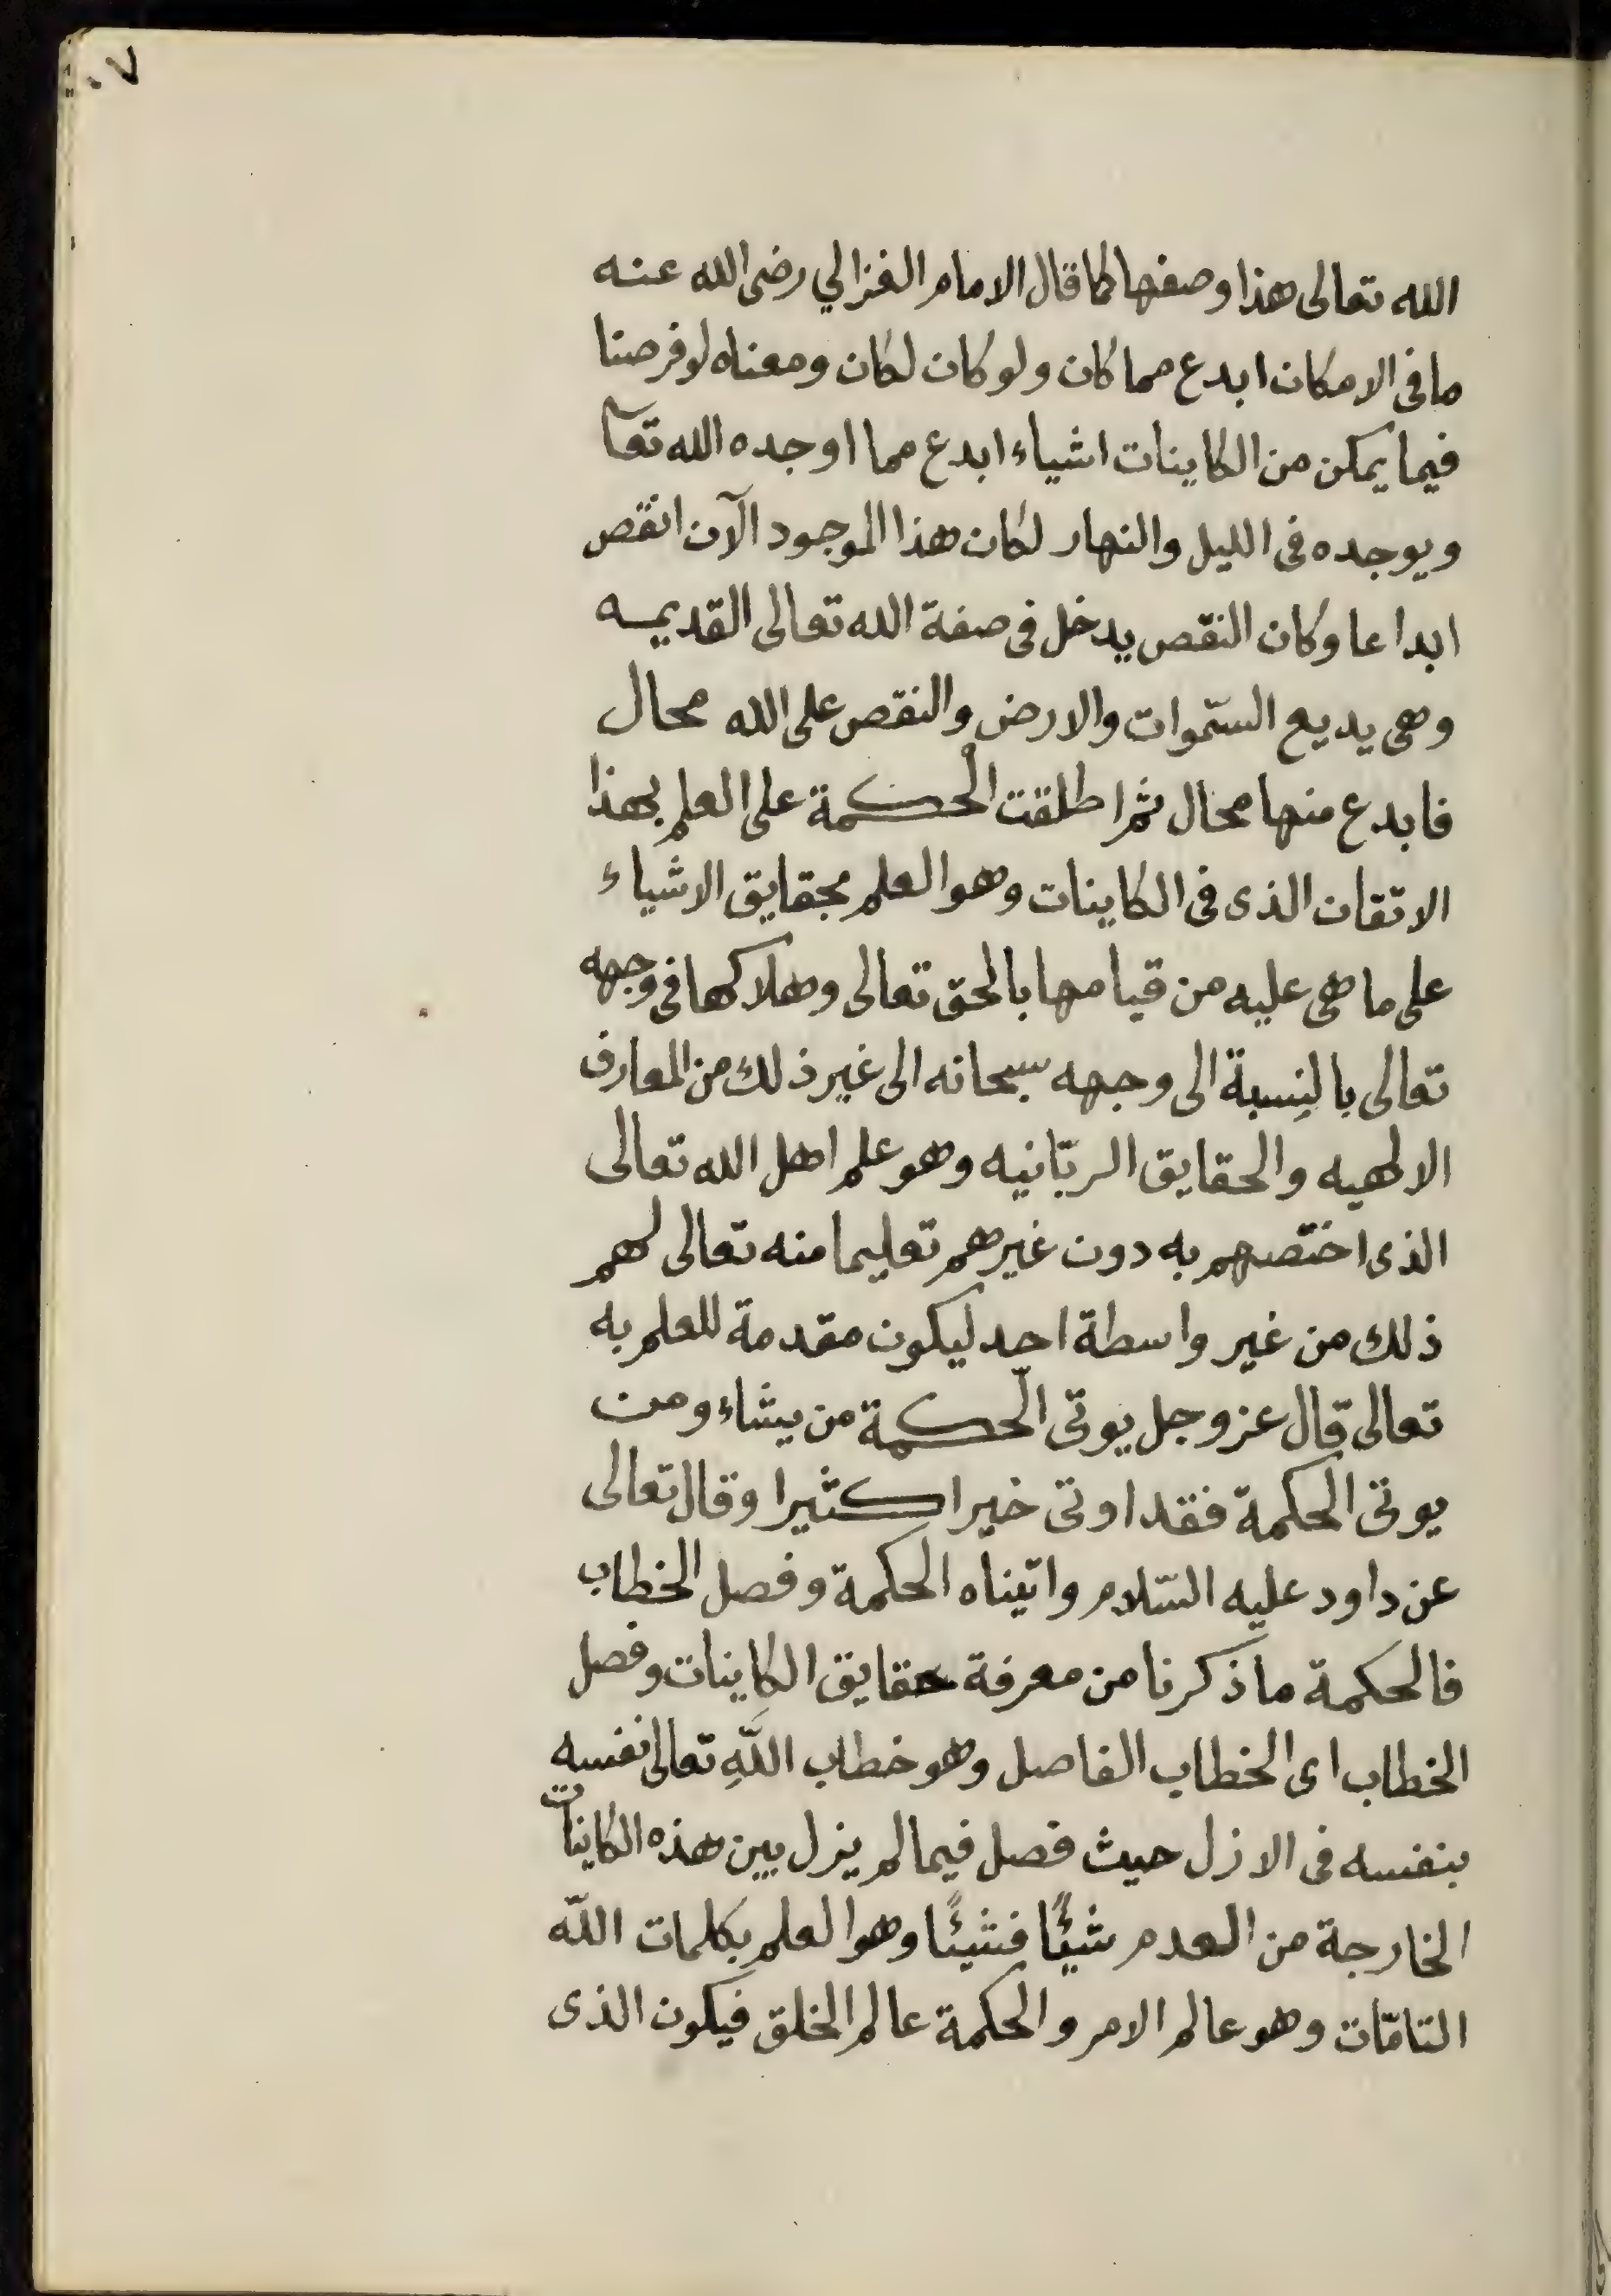 ٠٧
الله تعالى هذا وصفها كما قال الامام الغزالي رضى الله عنه
ما فى الامكان ابدع مما كان ولو كان لكان ومعناه لو فرصنا
فيما يمكن من الكاينات اشياء ابدع مما اوجده الله تعآ
ويوجده فى الليل والنهار لكان هذا الموجود الآن انقص
ابداعا وكان النقص يدخل فى صفة الله تعالى القديمه
وهى يديع السّموات والارض والنقص على الله محال
فابدع منها محال ثم اطلقت الحكمة على العلم بهذا
الاتقان الذى فى الكاينات وهو العلم بحقايق الاشياء
على ما هى عليه من قيامها بالحق تعالى وهلاكها فى وجهه
تعالى بالنِسبة الى وجهه سبحانه الى غير ذلك من المعارف
الالهيه والحقايق الربّانيه وهو علم اهل الله تعالى
الذى اختصهم به دون غيرهم تعليما منه تعالى لهم
ذلك من غير واسطة احد ليكون مقدمة للعلم به
تعالى قال عز وجل يوتى الحكمة من يشاء ومن
يوتى الحكمة فقد اوتى خيرا كثيرا وقال تعالى
عن داود عليه السّلام واتيناه الحكمة وفصل الخطاب
فالحكمة ما ذكرنا من معرفة حقايق الكاينات وفصل
الخطاب اى الخطاب الفاصل وهو خطاب اللّهِ تعالى نفسه
بنفسه فى الازل حيث فصل فيما لم يزل بين هذه الكاينات
الخارجة من العدم شيئًا فشيئًا وهو العلم بكلمات اللّه
التامّات وهو عالم الامر والحكمة عالم الخلق فيكون الذى